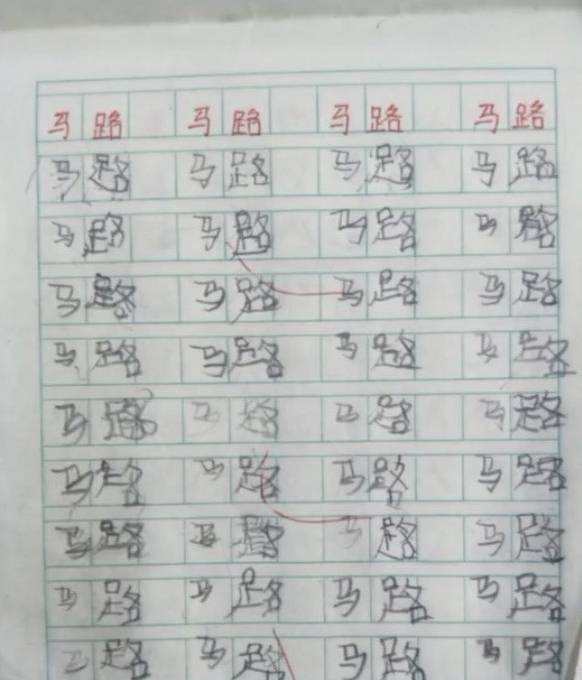 马路 马路 马路 马路
马路 马路 马路 马路
马路 马路 马路 马路
马路 马路 马路 马路
马路 马路 马路 马路
马路 马路 马路 马路
马路 马路 马路 马路
马路 马路 马路 马路
马路 马路 马路 马路
马路 马路 马路 马路